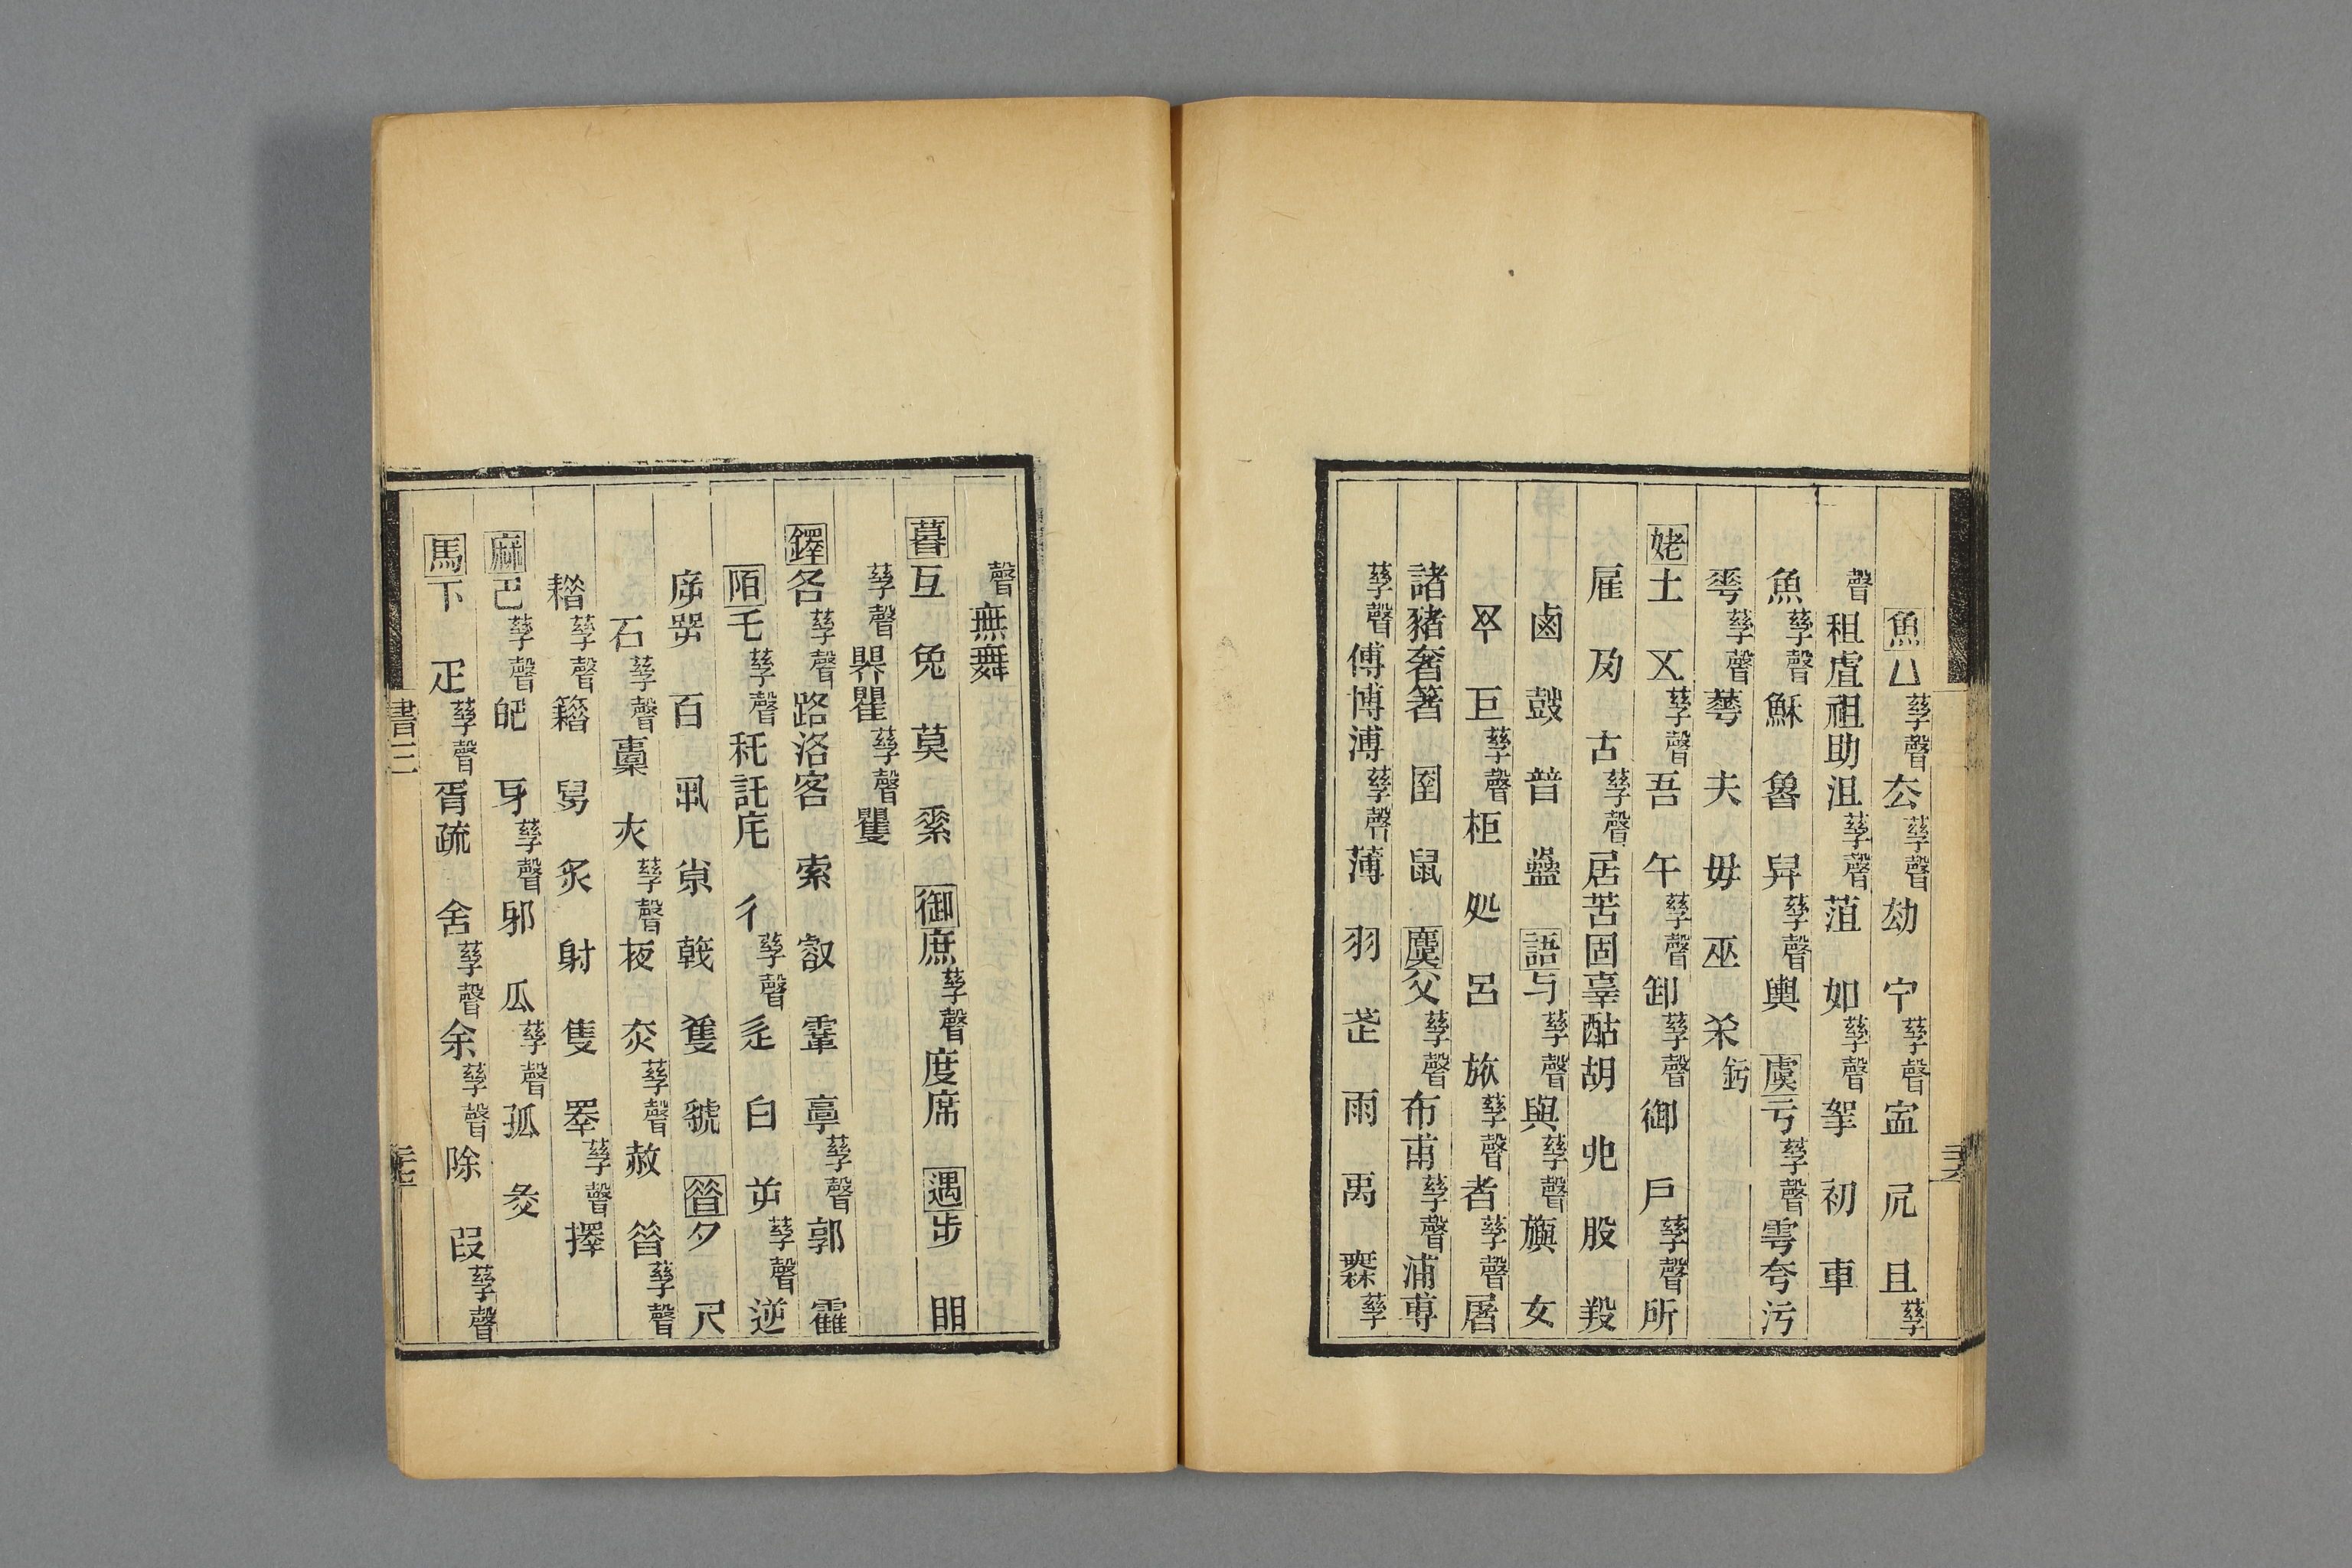 魚凵孳聲厺孳聲劫宁孳聲𥁕凥且孳
聲租虘祖助沮孳聲菹如孳聲挐初車
魚孳聲穌魯舁孳聲輿虞亏孳聲雩夸污
孳聲夫毋巫釫
姥土孳聲吾午孳聲卸孳聲御戶孳聲所
雇古孳聲居苦固辜酤胡股羖
鹵鼓普蠱語与孳聲與孳聲旟女
巨孳聲柜処呂旅孳聲者孳聲屠
諸豬奢箸圉鼠麌父孳聲布甫孳聲浦尃
孳聲傅博溥孳聲薄羽雨禹孳
聲無舞
暮互兔莫素御庶孳聲度席遇步䀠
孳聲瞿孳聲矍
鐸各孳聲路洛客索叡霍孳聲郭霍
陌乇孳聲秅託㡯彳孳聲辵白屰孳聲逆
百虢㫺夕尺
石孳聲橐孳聲孳聲赦㫺孳聲
耤孳聲籍舄炙射隻睪孳聲擇
麻巴孳聲牙孳聲邪瓜孳聲孤
馬下疋孳聲胥疏舍孳聲余孳聲除叚孳聲
書三